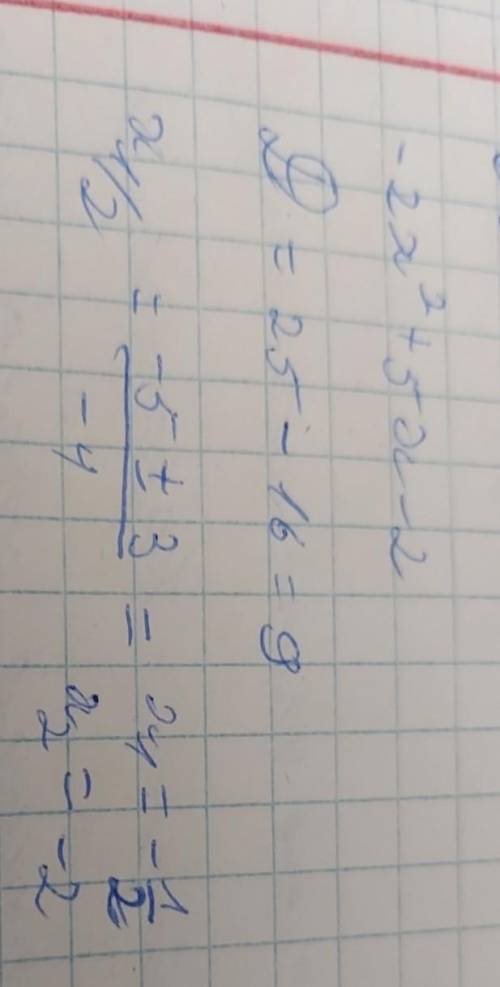 -2x² + 5x - 2
D = 25 - 16 = 9
x 1/2 = (-5 ± 3)/(-4) = x1 = -1/2
x2 = -2